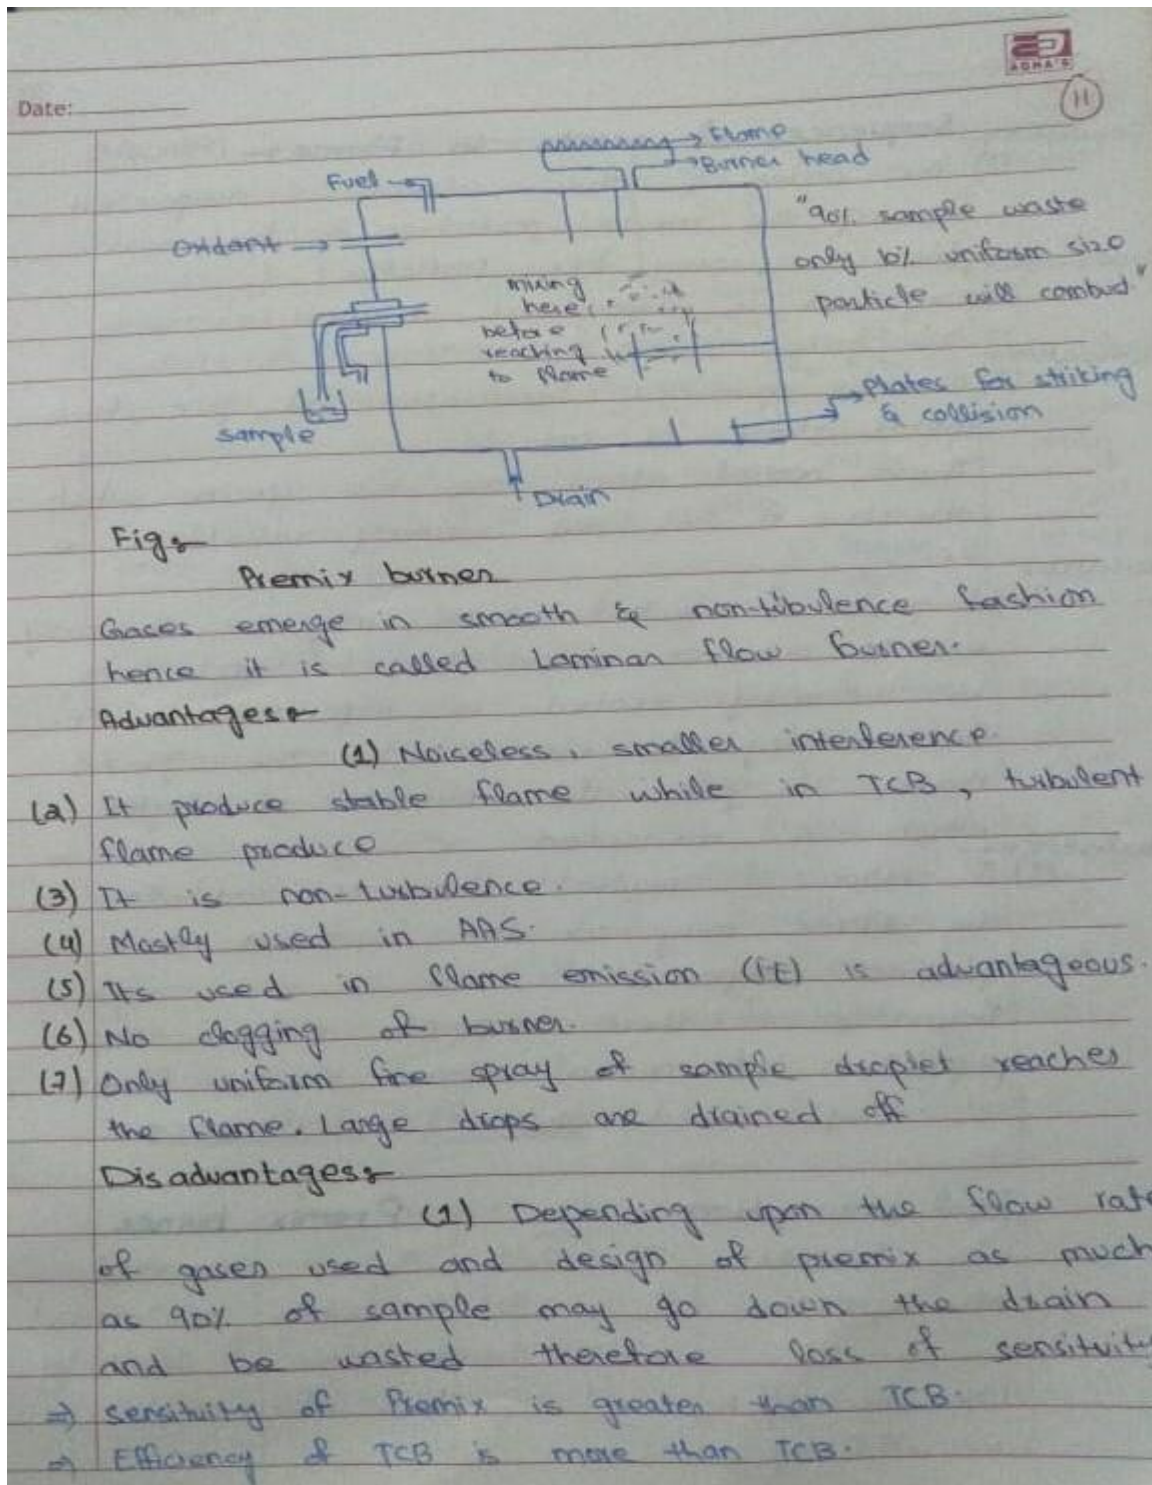 ADHA'S
Date:
11
Flame
Burner head
Fuel
Oxidant
"90% sample waste
only 10% uniform size
particle will combust."
mixing
here
before
reaching
to flame
Plates for striking
& collision
Sample
Drain
Fig:-
Premix burner
Gases emerge in smooth & non-tubulence fashion
hence it is called Laminar flow burner.
Advantages:-
(1) Noiseless, smaller interference.
(2) It produce stable flame while in TCB, turbulent
flame produce
(3) It is non-turbulence.
(4) Mostly used in AAS.
(5) Its used in flame emission (FE) is advantageous.
(6) No clogging of burner.
(7) Only uniform fine spray of sample droplet reaches
the flame. Large drops are drained off
Disadvantages:-
(1) Depending upon the flow rate
of gases used and design of premix as much
as 90% of sample may go down the drain
and be wasted therefore loss of sensitivity
⇒ Sensitivity of Premix is greater than TCB.
⇒ Efficiency of TCB is more than TCB.